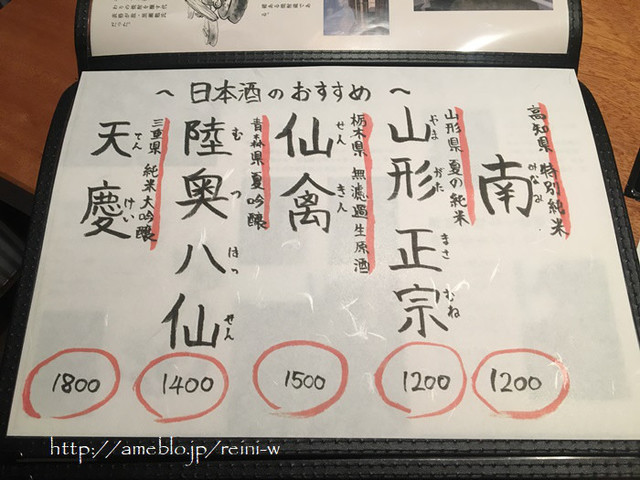 ～ 日本酒のおすすめ ～
高知県 特別純米
南
みなみ
山形県 夏の純米
山形正宗
やま がた まさ むね
栃木県 無濾過生原酒
仙禽
せん きん
青森県 夏吟醸
陸奥八仙
む つ はっ せん
三重県 純米大吟醸
天慶
てん けい
1200
1200
1500
1400
1800
http://ameblo.jp/reini-w